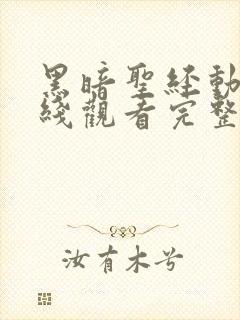 黑暗聖經動
綫觀看完整
汝有木兮